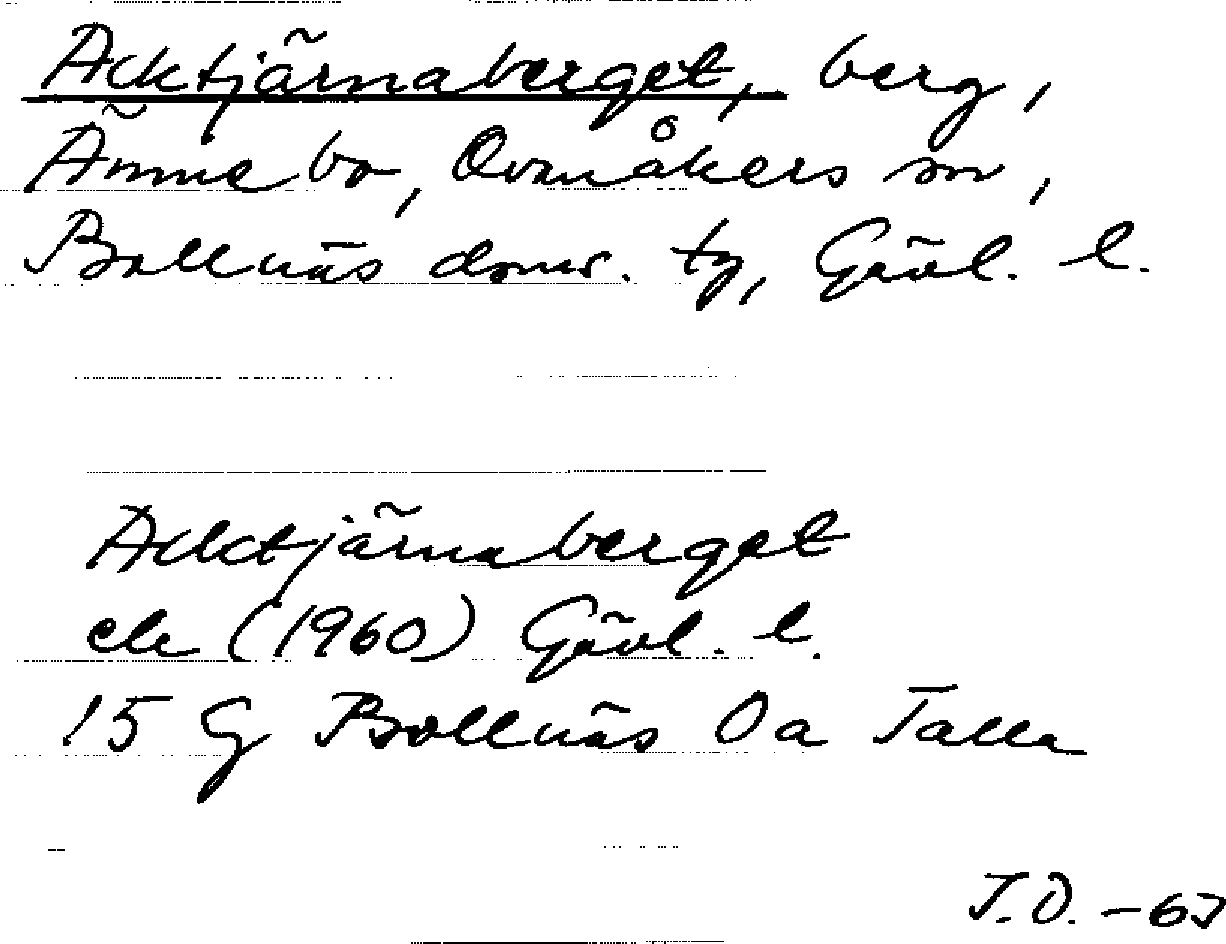 Acktjärnaberget, berg,
Ämnebo, Ovanåkers sn,
Bollnäs doms. tg, Gävl. l.
Acktjärnaberget
ek (1960) Gävl. l.
15 G Bollnäs 0 a Talla
J.O. -63